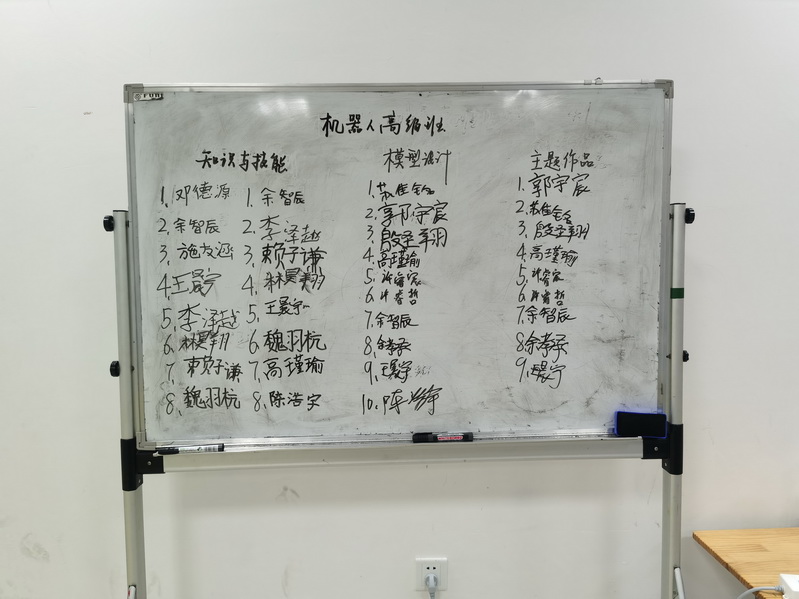 机器人高级班
知识与技能
1、邓德源
2、余智辰
3、施友涵
4、王景宁
5、李泽越
6、林昊翔
7、赖子谦
8、魏羽杭
1、余智辰
2、李泽越
3、赖子谦
4、林昊翔
5、王景宁
6、魏羽杭
7、高瑾瑜
8、陈浩宇
模型设计
1、苏佳
2、郭宇宸
3、殷圣翔
4、高瑾瑜
5、许睿宸
6、许睿哲
7、余智辰
8、余孝承
9、王景宁
10、陈浩宇
主题作品
1、郭宇宸
2、苏佳
3、殷圣翔
4、高瑾瑜
5、许睿宸
6、许睿哲
7、余智辰
8、余孝承
9、王景宁